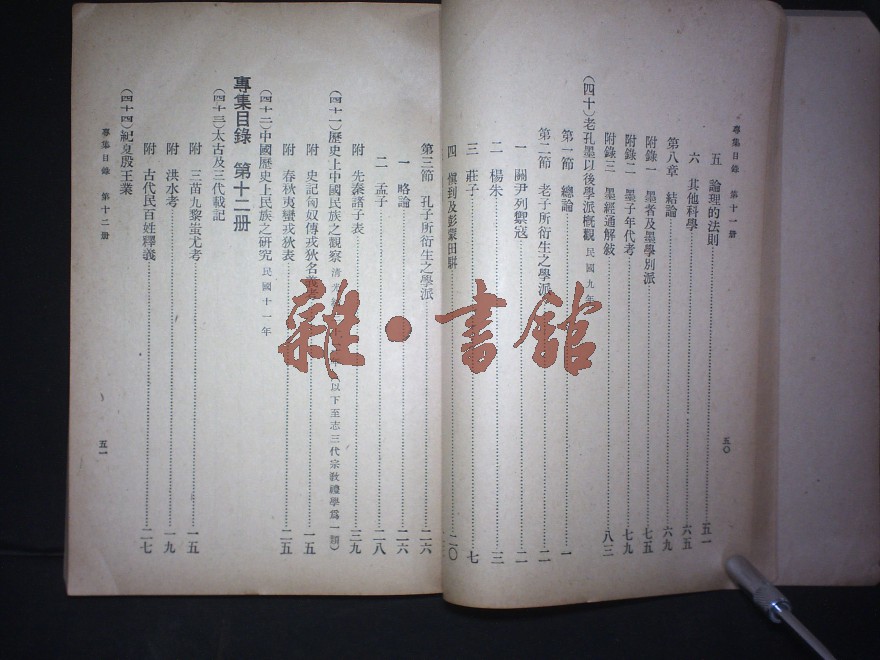 專集目錄 第十一册
五〇
五 論理的法則 五一
六 其他科學 六五
第八章 結論 六九
附錄一 墨者及墨學別派 七五
附錄二 墨子年代考 七九
附錄三 墨經通解敍 八三
(四十)老孔墨以後學派概觀 民國九年
第一節 總論 一
第二節 老子所衍生之學派 二
一 關尹列禦寇 二
二 楊朱 三
三 莊子 七
四 慎到及彭蒙田駢 二〇
第三節 孔子所衍生之學派 二六
一 略論 二六
二 孟子 二八
附 先秦諸子表 三九
(四十一)歷史上中國民族之觀察 清光 以下至志三代宗敎禮學爲一類)
附 史記匈奴傳戎狄名義考 一五
附 春秋夷蠻戎狄表 二五
(四十二)中國歷史上民族之硏究 民國十一年
專集目錄 第十二册
(四十三)太古及三代載記
附 三苗九黎蚩尤考 一五
附 洪水考 一九
附 古代民百姓釋義 二七
(四十四)紀夏殷王業
專集目錄 第十二册
五一
雜·書館